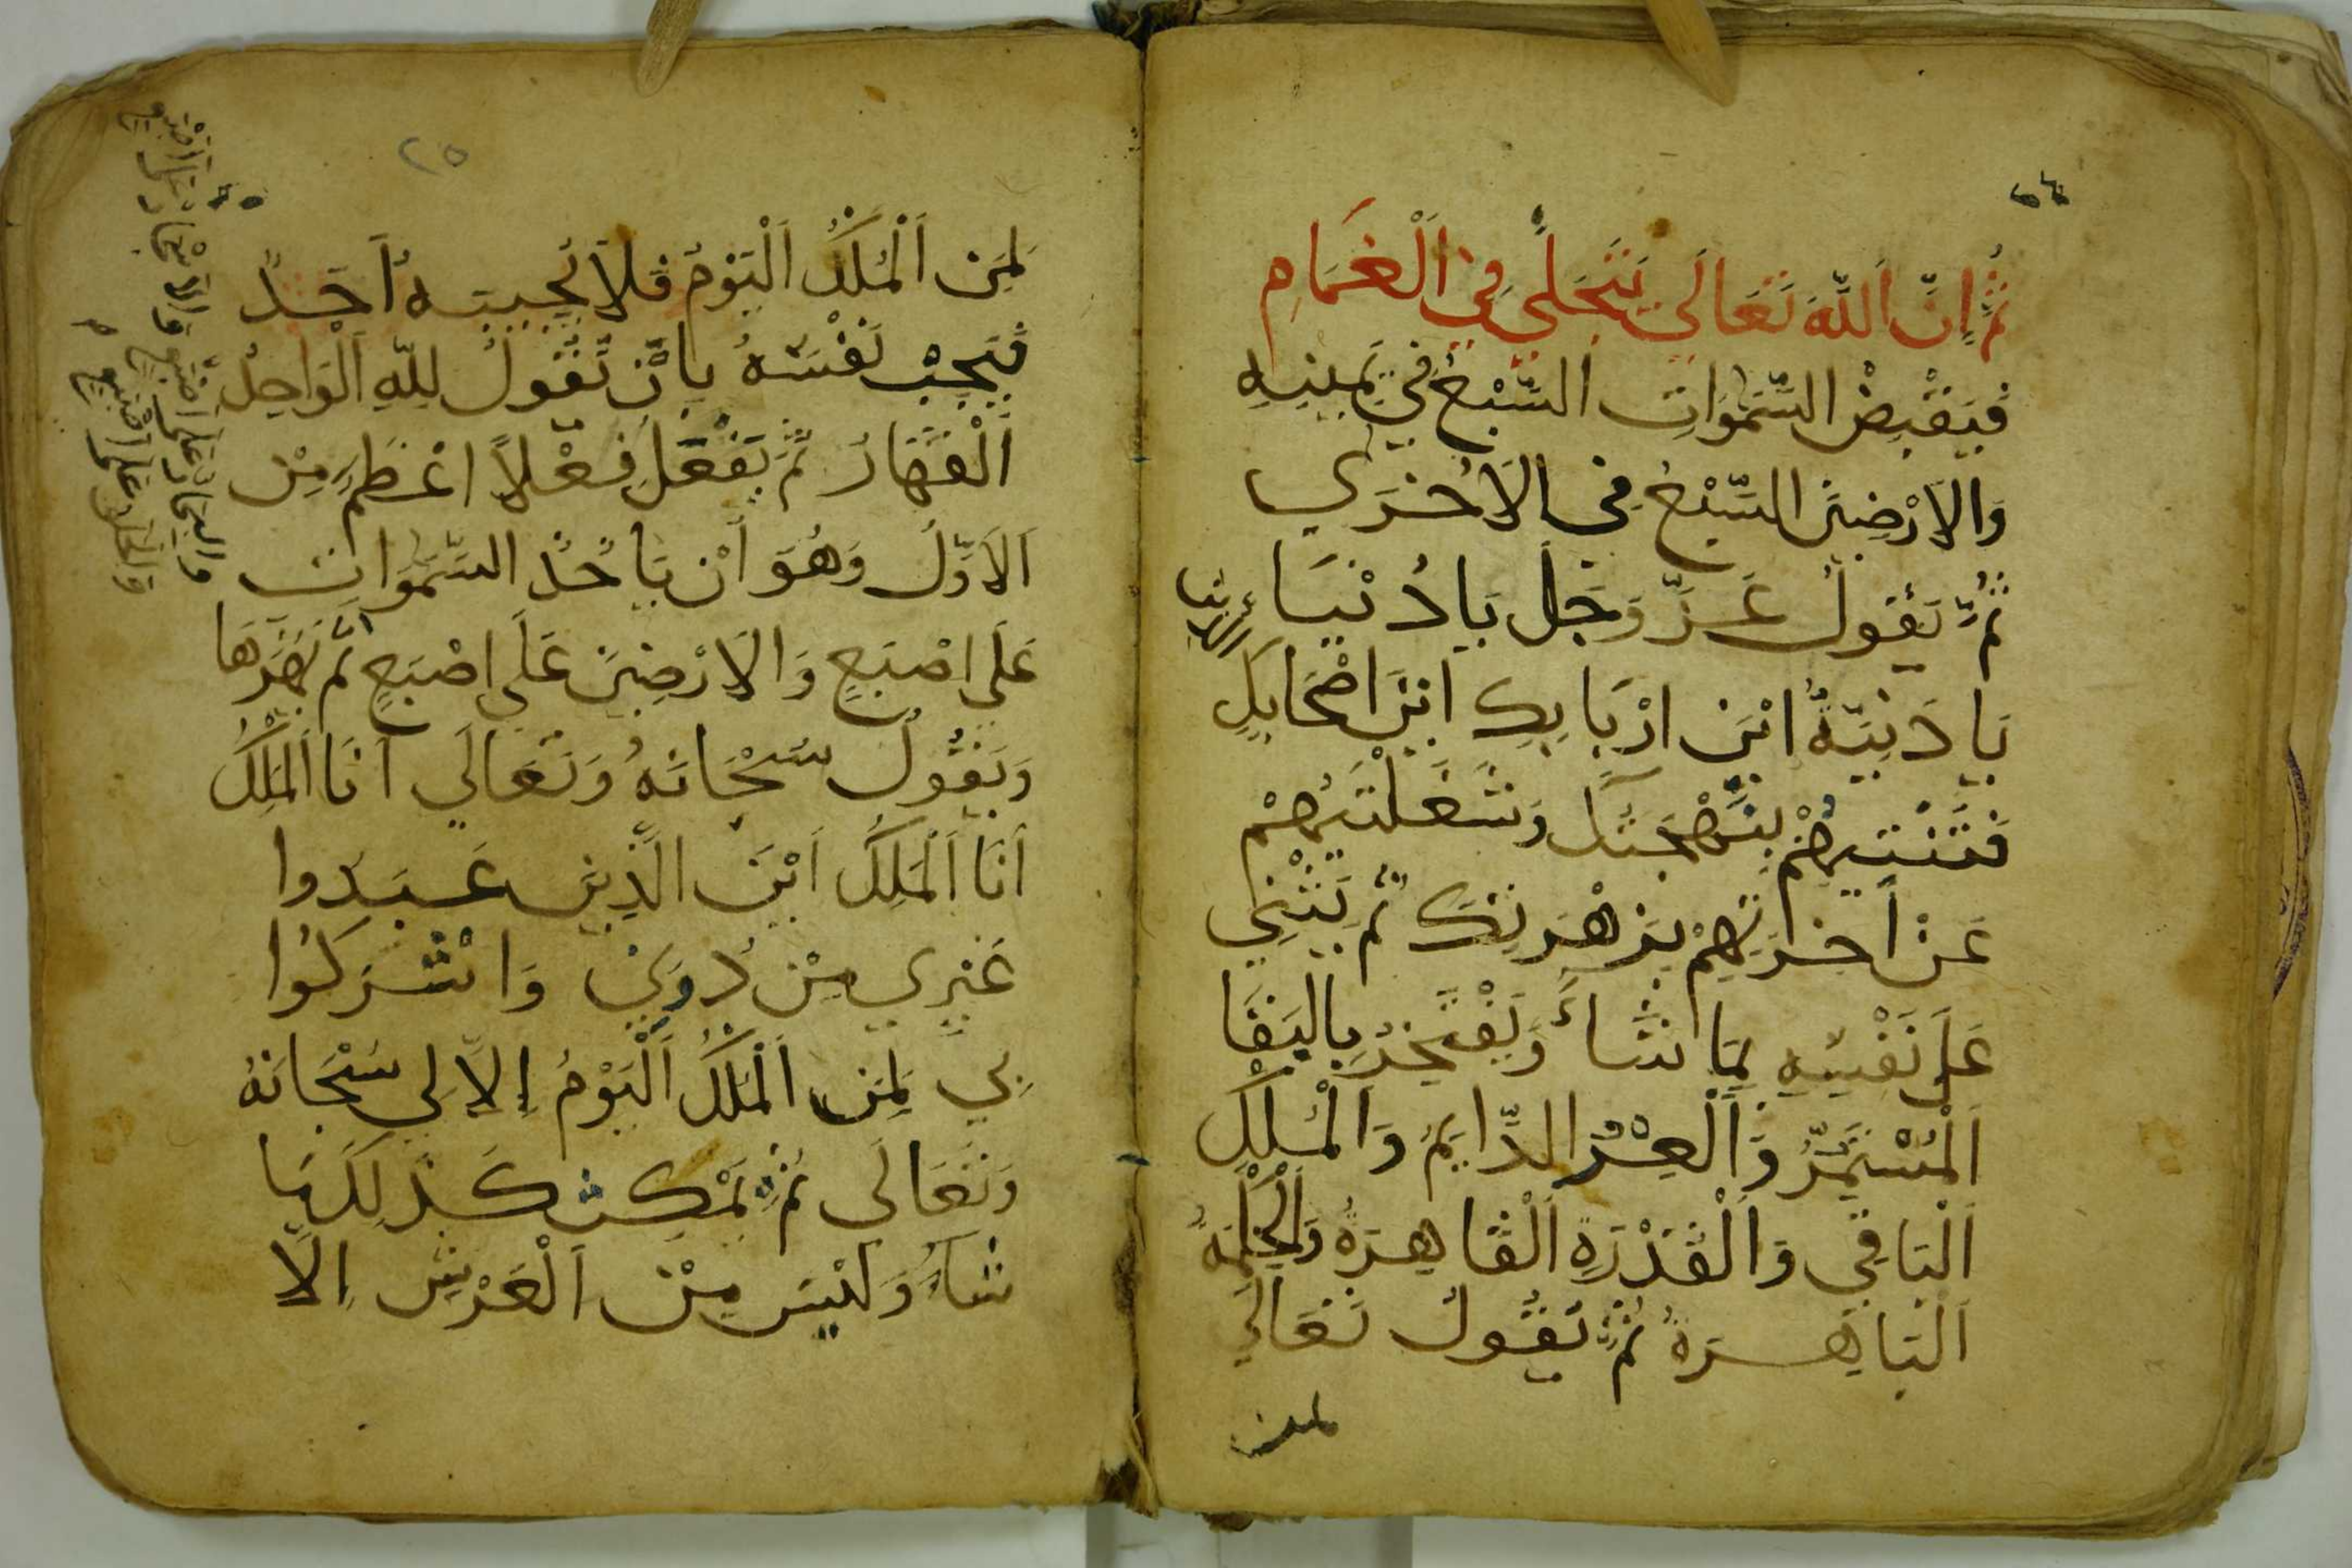 ثُمَّ إِنَّ اَللَّهَ تَعَالَي يَتَجَلَّي فِي اَلْغَمَامِ
فَيَقْبِضُ السَّمَوَاتِ السَّبْعُ فِي يَمِينِهِ
وَالاَرْضِينَ السَّبْعُ فِي الاَخْرَي
ثُمَّ يَقُولُ عَزَّ وَجَلَّ يَا دُنْيَا
يَا دَنِيَّةُ ايْنَ ارْبَابِكِ ايْنَ اصْحَابِكِ
فَتَنْتِيهِمْ بِبَهْجَتِكِ وَشَغَلْتِيهِمْ
عَنْ أَخِرَتِهِمْ بِزَهْرَتِكِ ثُمَّ يَثْنِي
عَلَي نَفْسِهِ بِمَا شَاءَ وَيَفْتَخِرُ بِالبَقَا
اَلْمُسْتَمِرُّ وَاَلْعِزُّ الدَّايِمُ وَالْمُلْكِ
اَلْبَاقِي وَاَلْقُدْرَةِ اَلْقَاهِرَةُ وَالْحِكْمَةُ
اَلْبَاهِرَةُ ثُمَّ يَقُولُ تَعَالَي
لمن
٢٥
لِمَنِ اَلْمُلْكُ اَلْيَوْمَ فَلاَ يُجِيبَهُ أَحَدٌ
فَيَجِبْ نَفْسَهُ بِاَنْ يَّقُولُ لِلّهِ اَلْوَاحِدُ
اَلْقَهَارُ ثُمَّ يَفْعَلُ فِعْلاً اعْظَمِ مِنْ
اَلاَوَّلُ وَهُوَ أَنْ يَاخُذُ السَّمَوَات
عَلَي اصْبَعٍ وَالاَرْضِينَ عَلَي اصْبَعٍ ثُمَّ يَهُزُّهَا
وَيَقُولُ سُبْحَانَهُ وَتَعَالَي اَنَا اَلْمَلِكُ
اَنَا اَلْمَلِكُ اَيْنَ الَّذِينَ عَبَدوا
غَيْرِي مِنْ دُونِي وَاشْرَكُوا
بِي لِمَنِ اَلْمُلْكُ اَلْيَوْمُ اِلاَّ لِي سُبْحَانَهُ
وَتَعَالَي ثُمَّ يَمْكِث كَذَلِكَ مَا
شَاءَ وَلَيْسَ مِنْ اَلْعَرْشِ اِلَّا